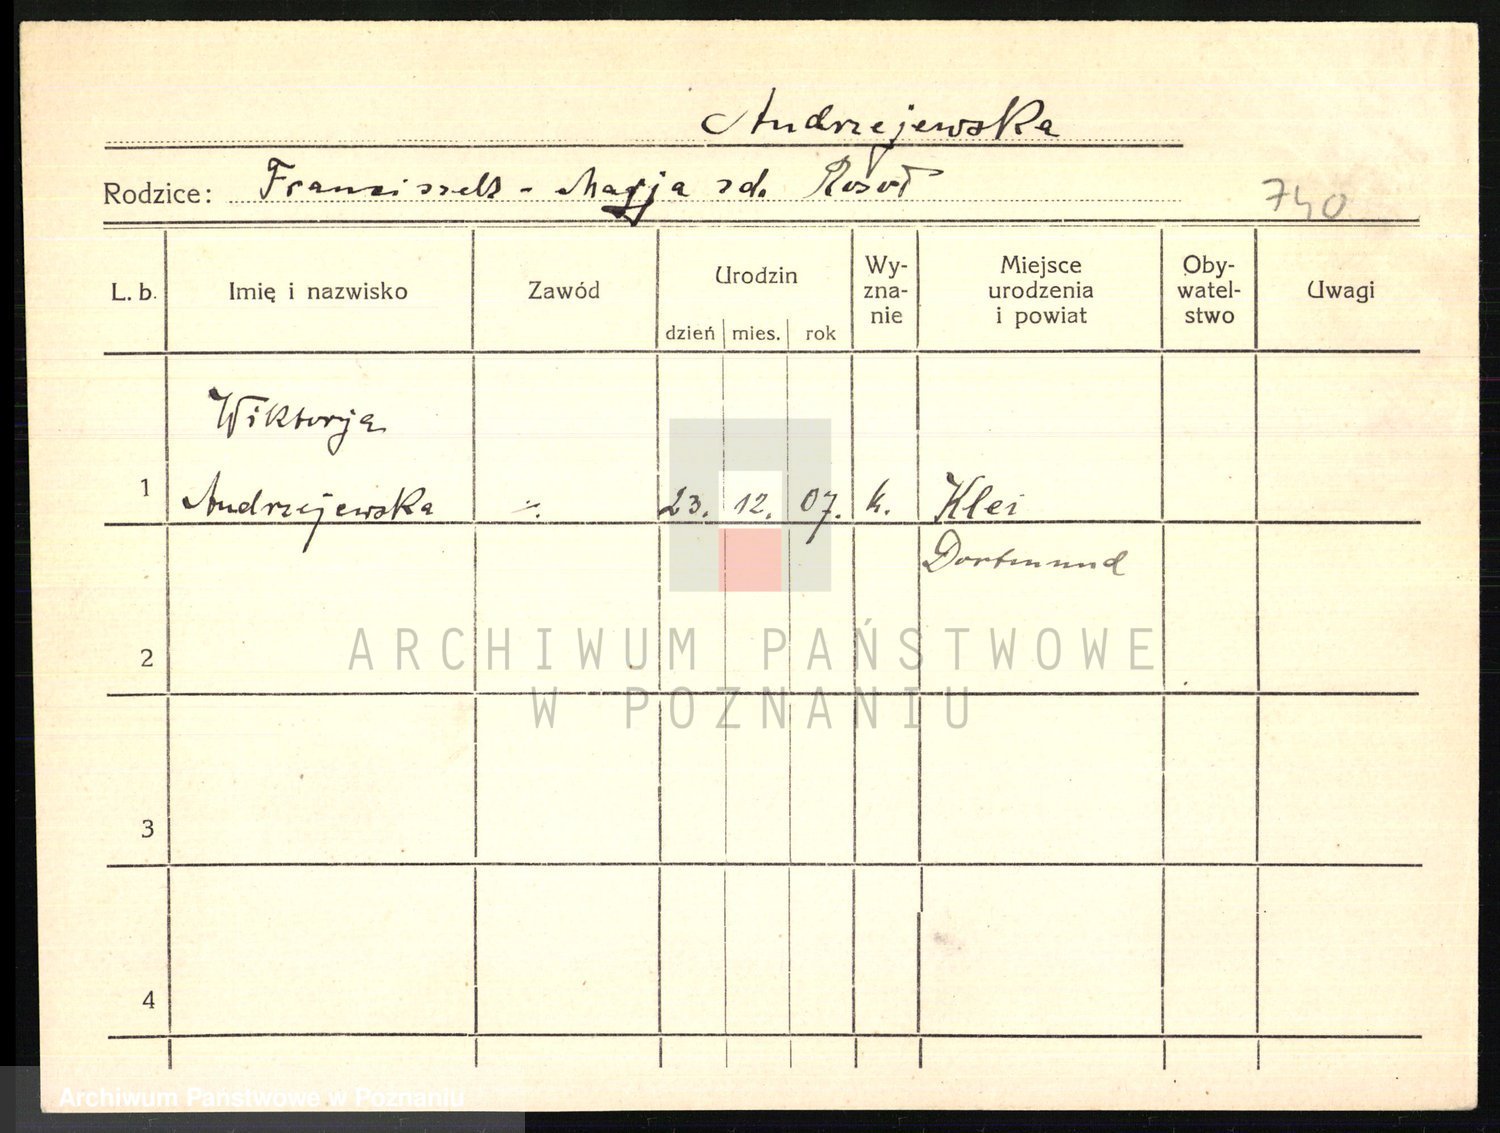 Andrzejewska
Rodzice: Franciszek - Marja zd. Rosół
740
L. b. Imię i nazwisko Zawód Urodzin dzień mies. rok Wy-zna-nie Miejsce urodzenia i powiat Oby-watel-stwo Uwagi
Wiktorja
1 Andrzejewska -„- 23. 12. 07. k. Klei
Dortmund
2
3
4
ARCHIWUM PAŃSTWOWE
W POZNANIU
Archiwum Państwowe w Poznaniu